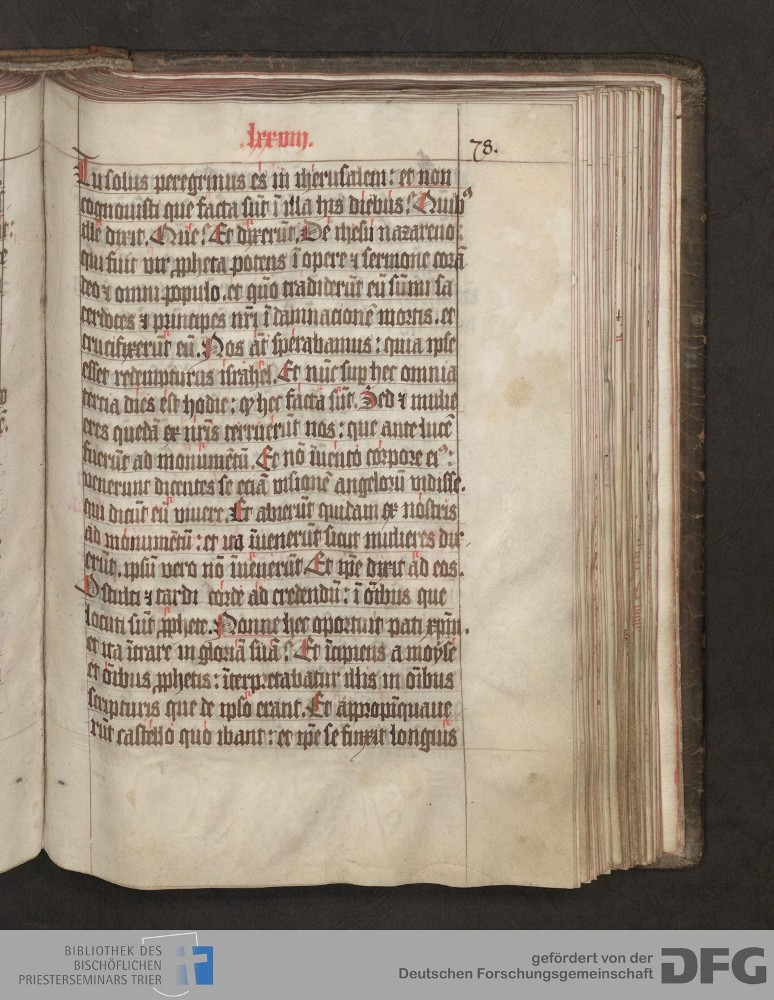 lxxviij.
78.
Tu solus peregrinus es in iherusalem: et non
cognouisti que facta sūt ī illa his diebus? Quibꝰ
ille dixit. Que? Et dixerūt. De ihesu nazareno:
qui fuit vir ꝓpheta potens ī opere ⁊ sermone corā
deo ⁊ omni populo. et quō tradiderūt eū sūmi sa
cerdotes ⁊ principes nr̄i ī damnacionē mortis. et
crucifixerūt eū. Nos āt sperabamus: quia ipse
esset redempturus israhel. Et nūc sup hec omnia
tercia dies est hodie: qꝫ hec facta sūt. Sed ⁊ mulie
eres quedā ex nr̄is terruerūt nos: que ante lucē
fuerūt ad monumētū. Et nō īuento corpore eiꝰ:
venerunt dicentes se eciā visionē angelorū vidisse.
qui dicūt eū viuere. Et abierūt quidam ex nostris
ad monumētū: et ita īuenerūt sicut mulieres dix
erūt. ipsū vero nō īuenerūt. Et ip̄e dixit ad eos.
O stulti ⁊ tardi corde ad credendū: ī oībus que
locuti sūt ꝓphete. Nonne hec oportuit pati xp̄m.
et ita ītrare in gloriā suā? Et īcipiens a moysē
et oībus ꝓphetis: īterpretabatur illis in oībus
scripturis que de ipso erant. Et appropīquaue
rūt castello quo ibant: et ip̄e se finxit longius
BIBLIOTHEK DES
BISCHÖFLICHEN
PRIESTERSEMINARS TRIER
gefördert von der
Deutschen Forschungsgemeinschaft
DFG